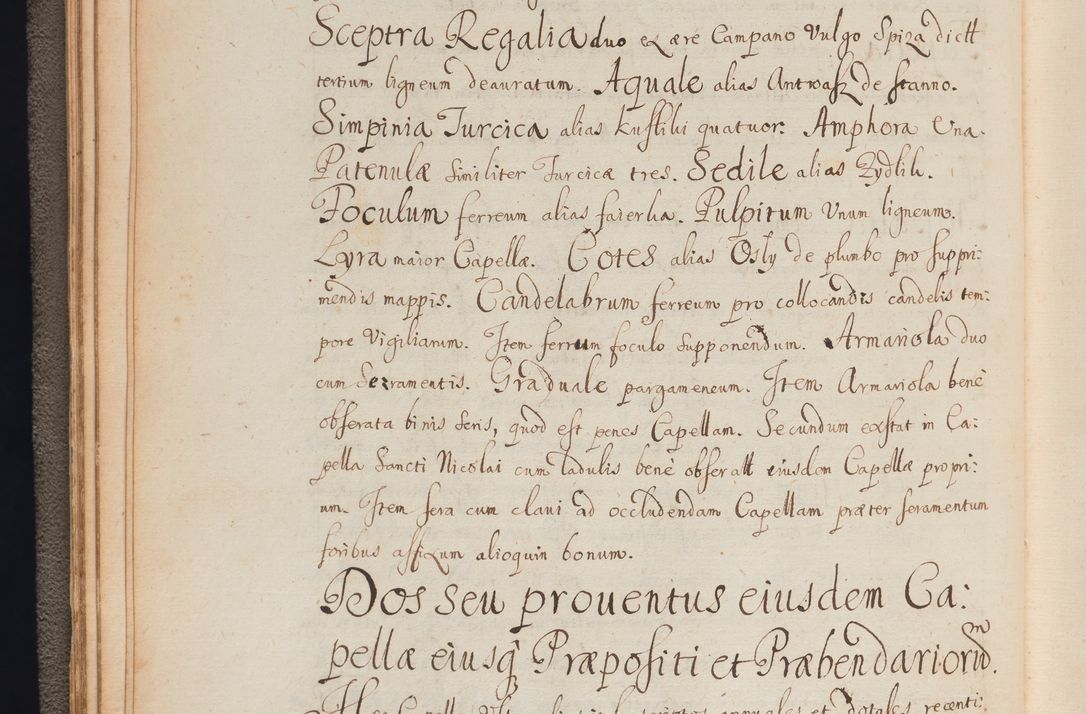 Sceptra Regalia duo ex ære Campano Vulgo Spiza dictt
tertium ligneum deauratum. Aquale alias Antwasz de stanno.
Simpinia Turcica alias kustiki quatuor. Amphora Una.
Patenulæ Similiter Turcicæ tres. Sedile alias Zydlik.
Foculum ferreum alias faierka. Pulpitum Unum ligneum.
Lyra maior Capellæ. Cotes alias Osly de plumbo pro suppri:
mendis mappis. Candelabrum ferreum pro collocandis candelis tem:
pore Vigiliarum. Item ferrum foculo supponendum. Armariola duo
cum Serramentis. Graduale pargameneum. Item Armariola benè
obserata binis Seris, quod est penes Capellam. Secundum exstat in Ca:
pella Sancti Nicolai cum ladulis benè obseratt eiusdem Capellæ propri:
um. Item sera cum claui ad occludendam Capellam præter seramentum
foribus affixum alioquin bonum.
Dos seu prouentus eiusdem Ca:
pellæ eiusq́ Præpositi et Præbendariorũm.
annuales et dotales recenti: